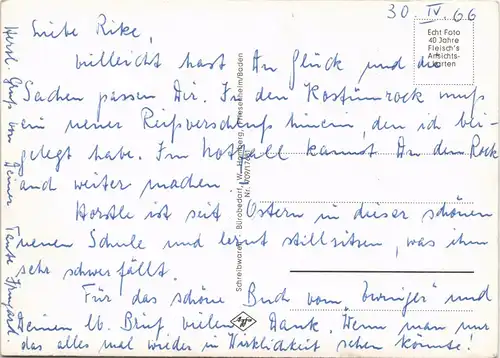 30. IV. 66
Echt Foto
40 Jahre
Fleisch's
Ansichts-
karten
Liebe Rike,
vielleicht hast Du Glück und die
Sachen passen Dir. In den Kostümrock muß
ein neuer Reißverschluß hinein, den ich bei-
gelegt habe. Im Notfall kannst Du den Rock
auch weiter machen.
Horstle ist seit Ostern in dieser schönen
neuen Schule und lernt stillsitzen, was ihm
sehr schwer fällt.
Für das schöne Buch vom "Zwinger" und
Deinen lb. Brief vielen Dank. Wenn man nur
das alles mal wieder in Wirklichkeit sehen könnte!
Herzl. Gruß von Deiner Tante Irmgard.
Schreibwaren - Bürobedarf, W. Friesenheim/Baden
Nr. 909/17681
Agfa